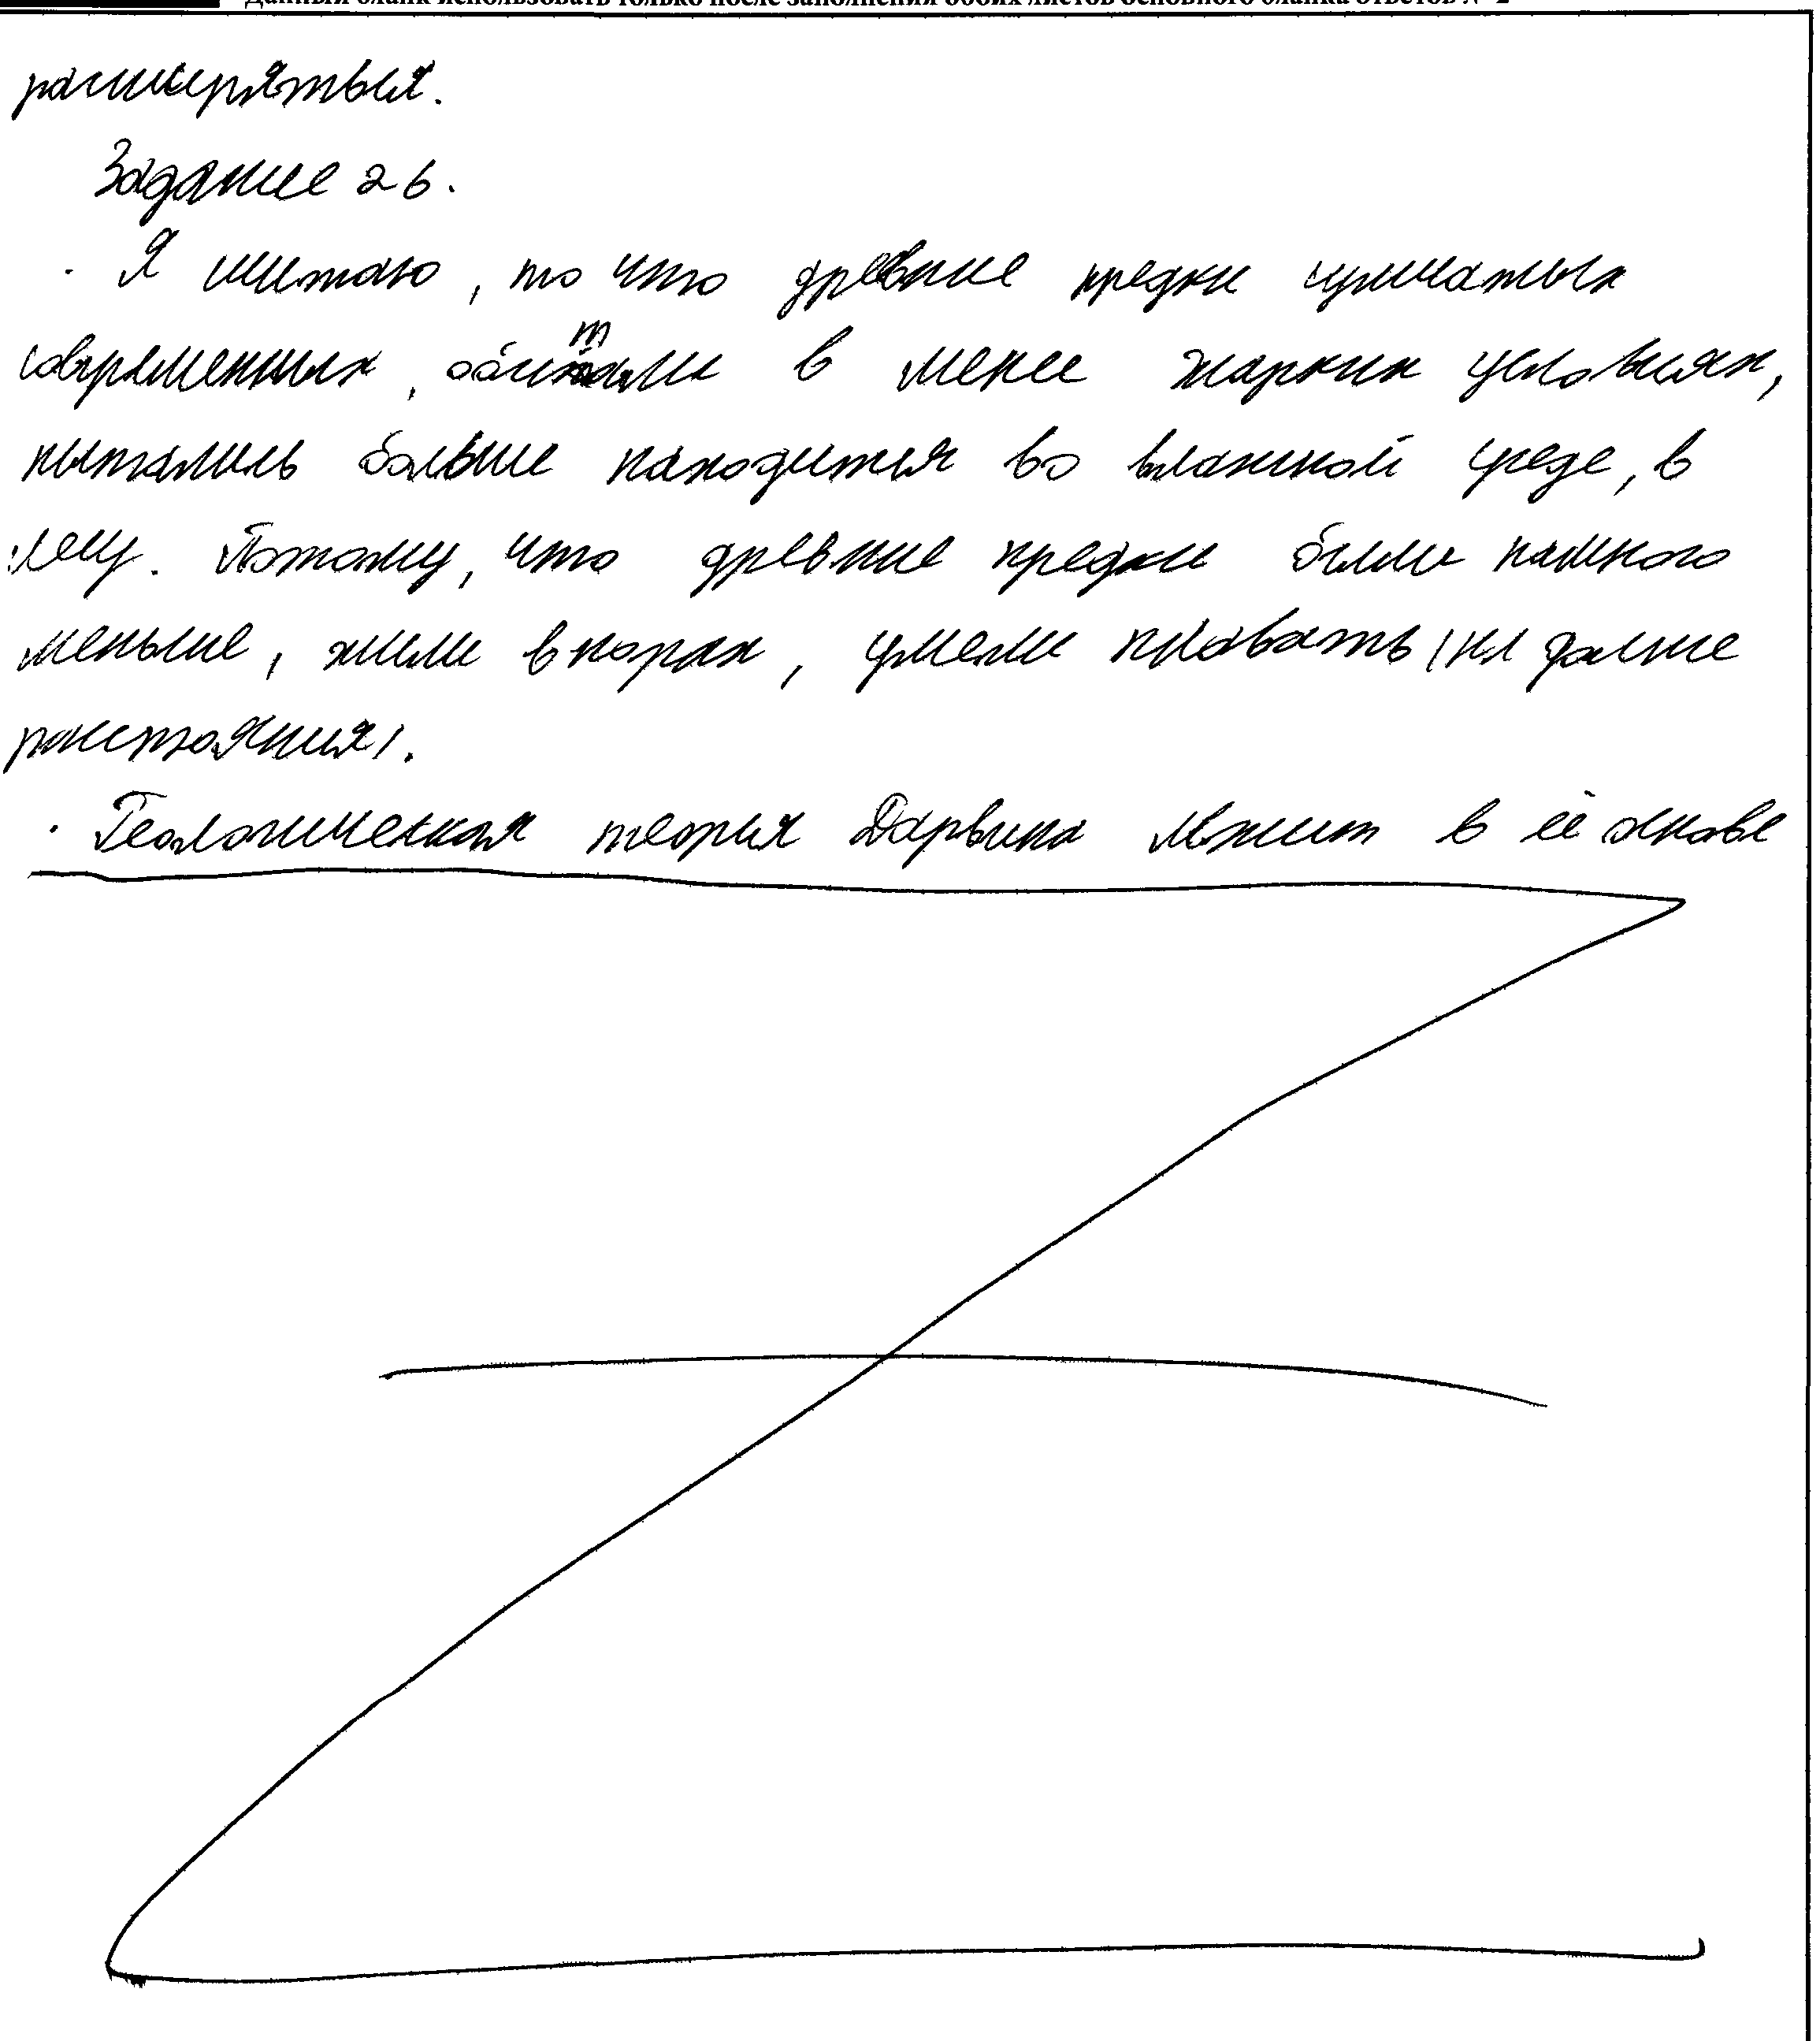 Данный бланк использовать только после заполнения обоих листов основного бланка ответов № 2
расширяться.
Задание 26.
· Я считаю, то что древние предки
современных, обитали в менее жарких условиях,
пытались больше находится во влажной среде, в
лесу. Потому, что древние предки были намного
меньше, жили в норах, умели плавать (на далние
расстояния).
· Геологическая теория Дарвина лежит в её основе